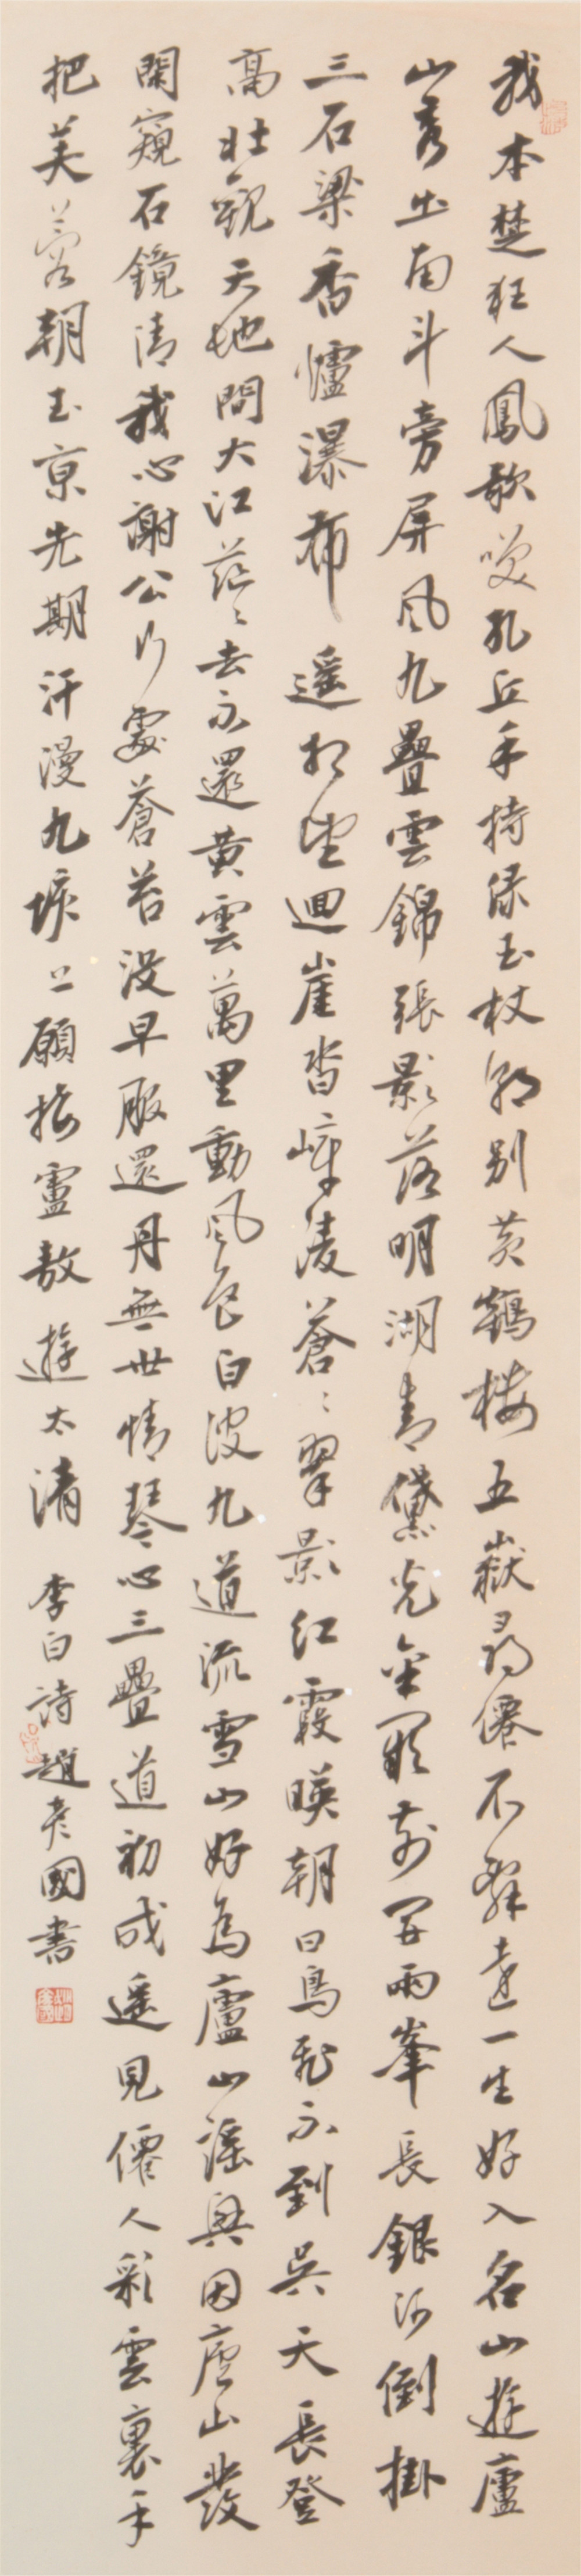 我本楚狂人鳳歌笑孔丘手持綠玉杖朝別黄鶴樓五嶽尋僊不辭遠一生好入名山遊廬
山秀出南斗旁屏風九疊雲錦張影落明湖青黛光金闕前開兩峯長銀河倒掛
三石梁香爐瀑布遥相望迴崖沓嶂凌蒼〻翠影紅霞暎朝日鳥飛不到吳天長登
高壯觀天地間大江茫〻去不還黄雲萬里動風色白波九道流雪山好為廬山謡興因廬山發
閑窺石鏡清我心謝公行處蒼苔没早服還丹無世情琴心三疊道初成遥見僊人彩雲裏手
把芙蓉朝玉京先期汗漫九垓上願接盧敖遊太清 李白詩 趙彦國書